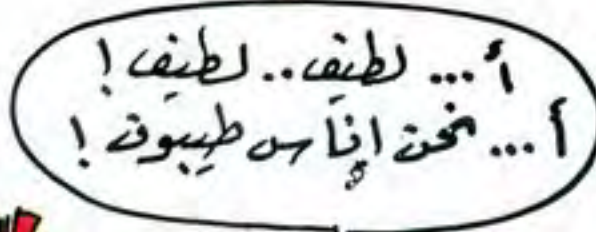 أ... لطيف.. لطيف!
أ... نحن إناس طيبون!